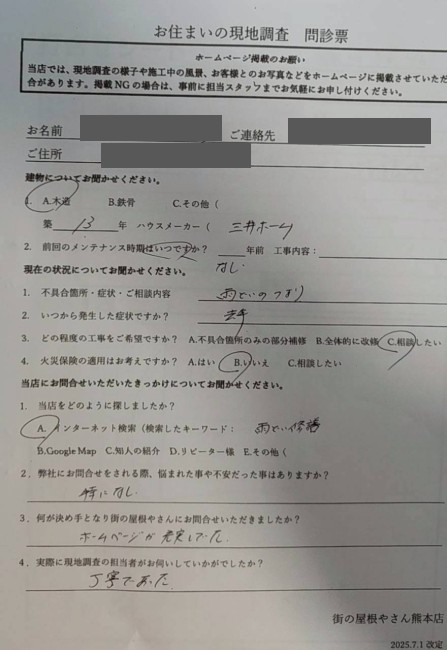 お住まいの現地調査 問診票
ホームページ掲載のお願い
当店では、現地調査の様子や施工中の風景、お客様とのお写真などをホームページに掲載させていただ
合があります。掲載NGの場合は、事前に担当スタッフまでお気軽にお申し付けください。
お名前 ご連絡先
ご住所
建物についてお聞かせください。
1. A.木造 B.鉄骨 C.その他（
築 13 年 ハウスメーカー（ 三井ホーム
2. 前回のメンテナンス時期はいつですか？ 年前 工事内容：
なし
現在の状況についてお聞かせください。
1. 不具合箇所・症状・ご相談内容 雨といのつまり
2. いつから発生した症状ですか？ 去年
3. どの程度の工事をご希望ですか？ A.不具合箇所のみの部分補修 B.全体的に改修 C.相談したい
4. 火災保険の適用はお考えですか？ A.はい B.いいえ C.相談したい
当店にお問合せいただいたきっかけについてお聞かせください。
1. 当店をどのように探しましたか？
A.インターネット検索（検索したキーワード： 雨とい修繕
B.Google Map C.知人の紹介 D.リピーター様 E.その他（
2. 弊社にお問合せをされる際、悩まれた事や不安だった事はありますか？
特になし
3. 何が決め手となり街の屋根やさんにお問合せいただきましたか？
ホームページが充実していた。
4. 実際に現地調査の担当者がお伺いしていかがでしたか？
丁寧であった
街の屋根やさん熊本店
2025.7.1 改定